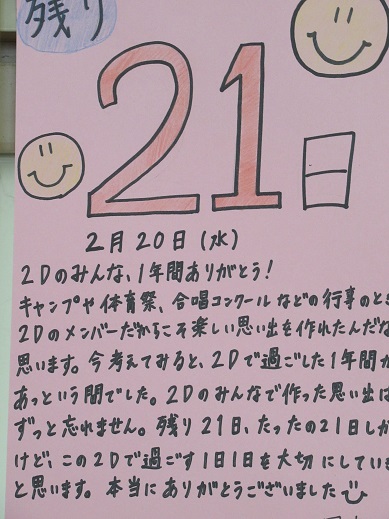 残り
21日
2月20日(水)
2Dのみんな、1年間ありがとう!
キャンプや体育祭、合唱コンクールなどの行事のとき
2Dのメンバーだからこそ楽しい思い出を作れたんだな
思います。今考えてみると、2Dで過ごした1年間が
あっという間でした。2Dのみんなで作った思い出は
ずっと忘れません。残り21日、たったの21日しか
けど、この2Dで過ごす1日1日を大切にしていき
と思います。本当にありがとうございました